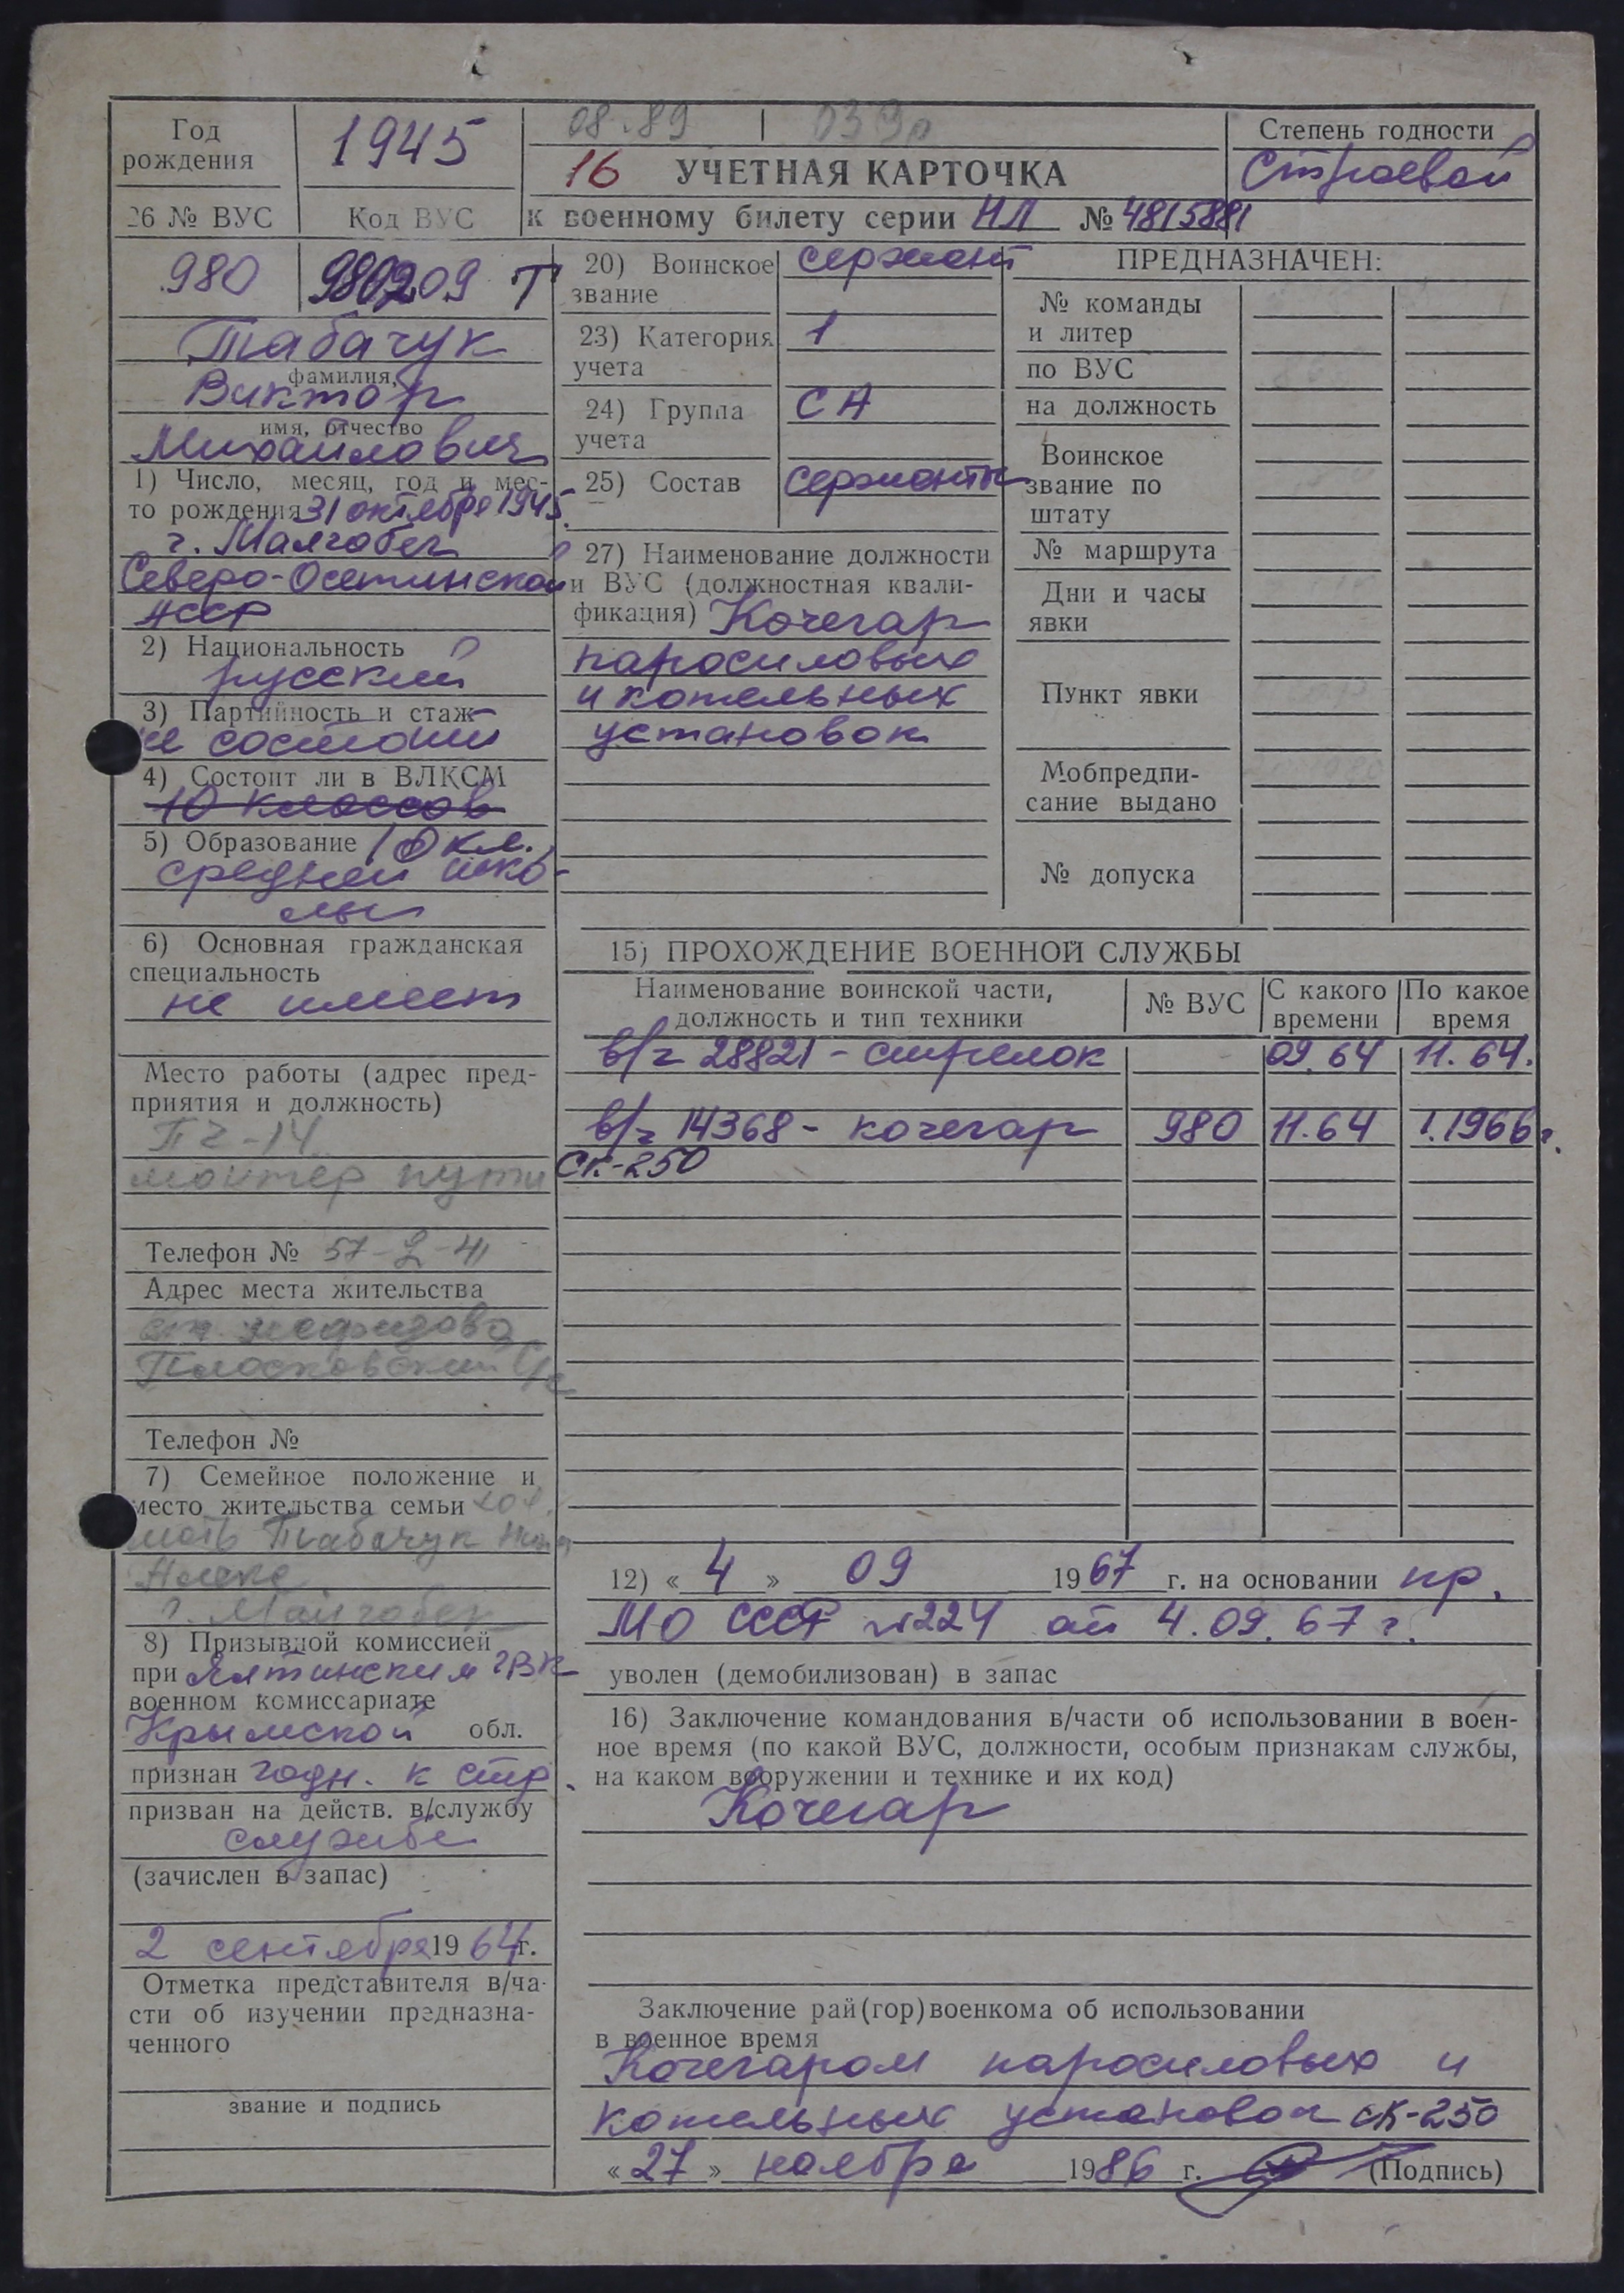 Год рождения
1945
08.89
Степень годности
Строевой
16 УЧЕТНАЯ КАРТОЧКА
26 № ВУС
Код ВУС
к военному билету серии НЛ № 4815881
980
980209 Т
Табачук
фамилия,
Виктор
имя, отчество
Михайлович
1) Число, месяц, год и мес-
то рождения 31 октября 1945.
г. Малгобек
Северо-Осетинской
АССР
2) Национальность
русский
3) Партийность и стаж
не состоит
4) Состоит ли в ВЛКСМ
10 классов
5) Образование 10 кл.
средней шко-
лы
6) Основная гражданская
специальность
не имеет
Место работы (адрес пред-
приятия и должность)
ПЧ-14
монтер пути
Телефон № 57-2-41
Адрес места жительства
Телефон №
7) Семейное положение и
место жительства семьи хол.
мать Табачук
г. Малгобек
8) Призывной комиссией
при Ялтинским ГВК
военном комиссариате
Крымской обл.
признан годн. к стр.
призван на действ. в/службу
службе
(зачислен в запас)
2 сентября 1964 г.
Отметка представителя в/ча-
сти об изучении предназна-
ченного
звание и подпись
20) Воинское
звание
сержант
23) Категория
учета
1
24) Группа
учета
СА
25) Состав
сержанты
27) Наименование должности
и ВУС (должностная квали-
фикация) Кочегар
паросиловых
и котельных
установок
ПРЕДНАЗНАЧЕН:
№ команды
и литер
по ВУС
на должность
Воинское
звание по
штату
№ маршрута
Дни и часы
явки
Пункт явки
Мобпредпи-
сание выдано
№ допуска
15) ПРОХОЖДЕНИЕ ВОЕННОЙ СЛУЖБЫ
Наименование воинской части,
должность и тип техники
№ ВУС
С какого
времени
По какое
время
в/ч 28821 - стрелок 09.64 11.64.
в/ч 14368 - кочегар 980 11.64 1.1966 г.
СК-250
12) « 4 » 09 1967 г. на основании пр.
МО СССР №224 от 4.09.67 г.
уволен (демобилизован) в запас
16) Заключение командования в/части об использовании в воен-
ное время (по какой ВУС, должности, особым признакам службы,
на каком вооружении и технике и их код)
Кочегар
Заключение рай(гор)военкома об использовании
в военное время
Кочегаром паросиловых и
котельных установок СК-250
« 27 » ноября 1986 г. (Подпись)